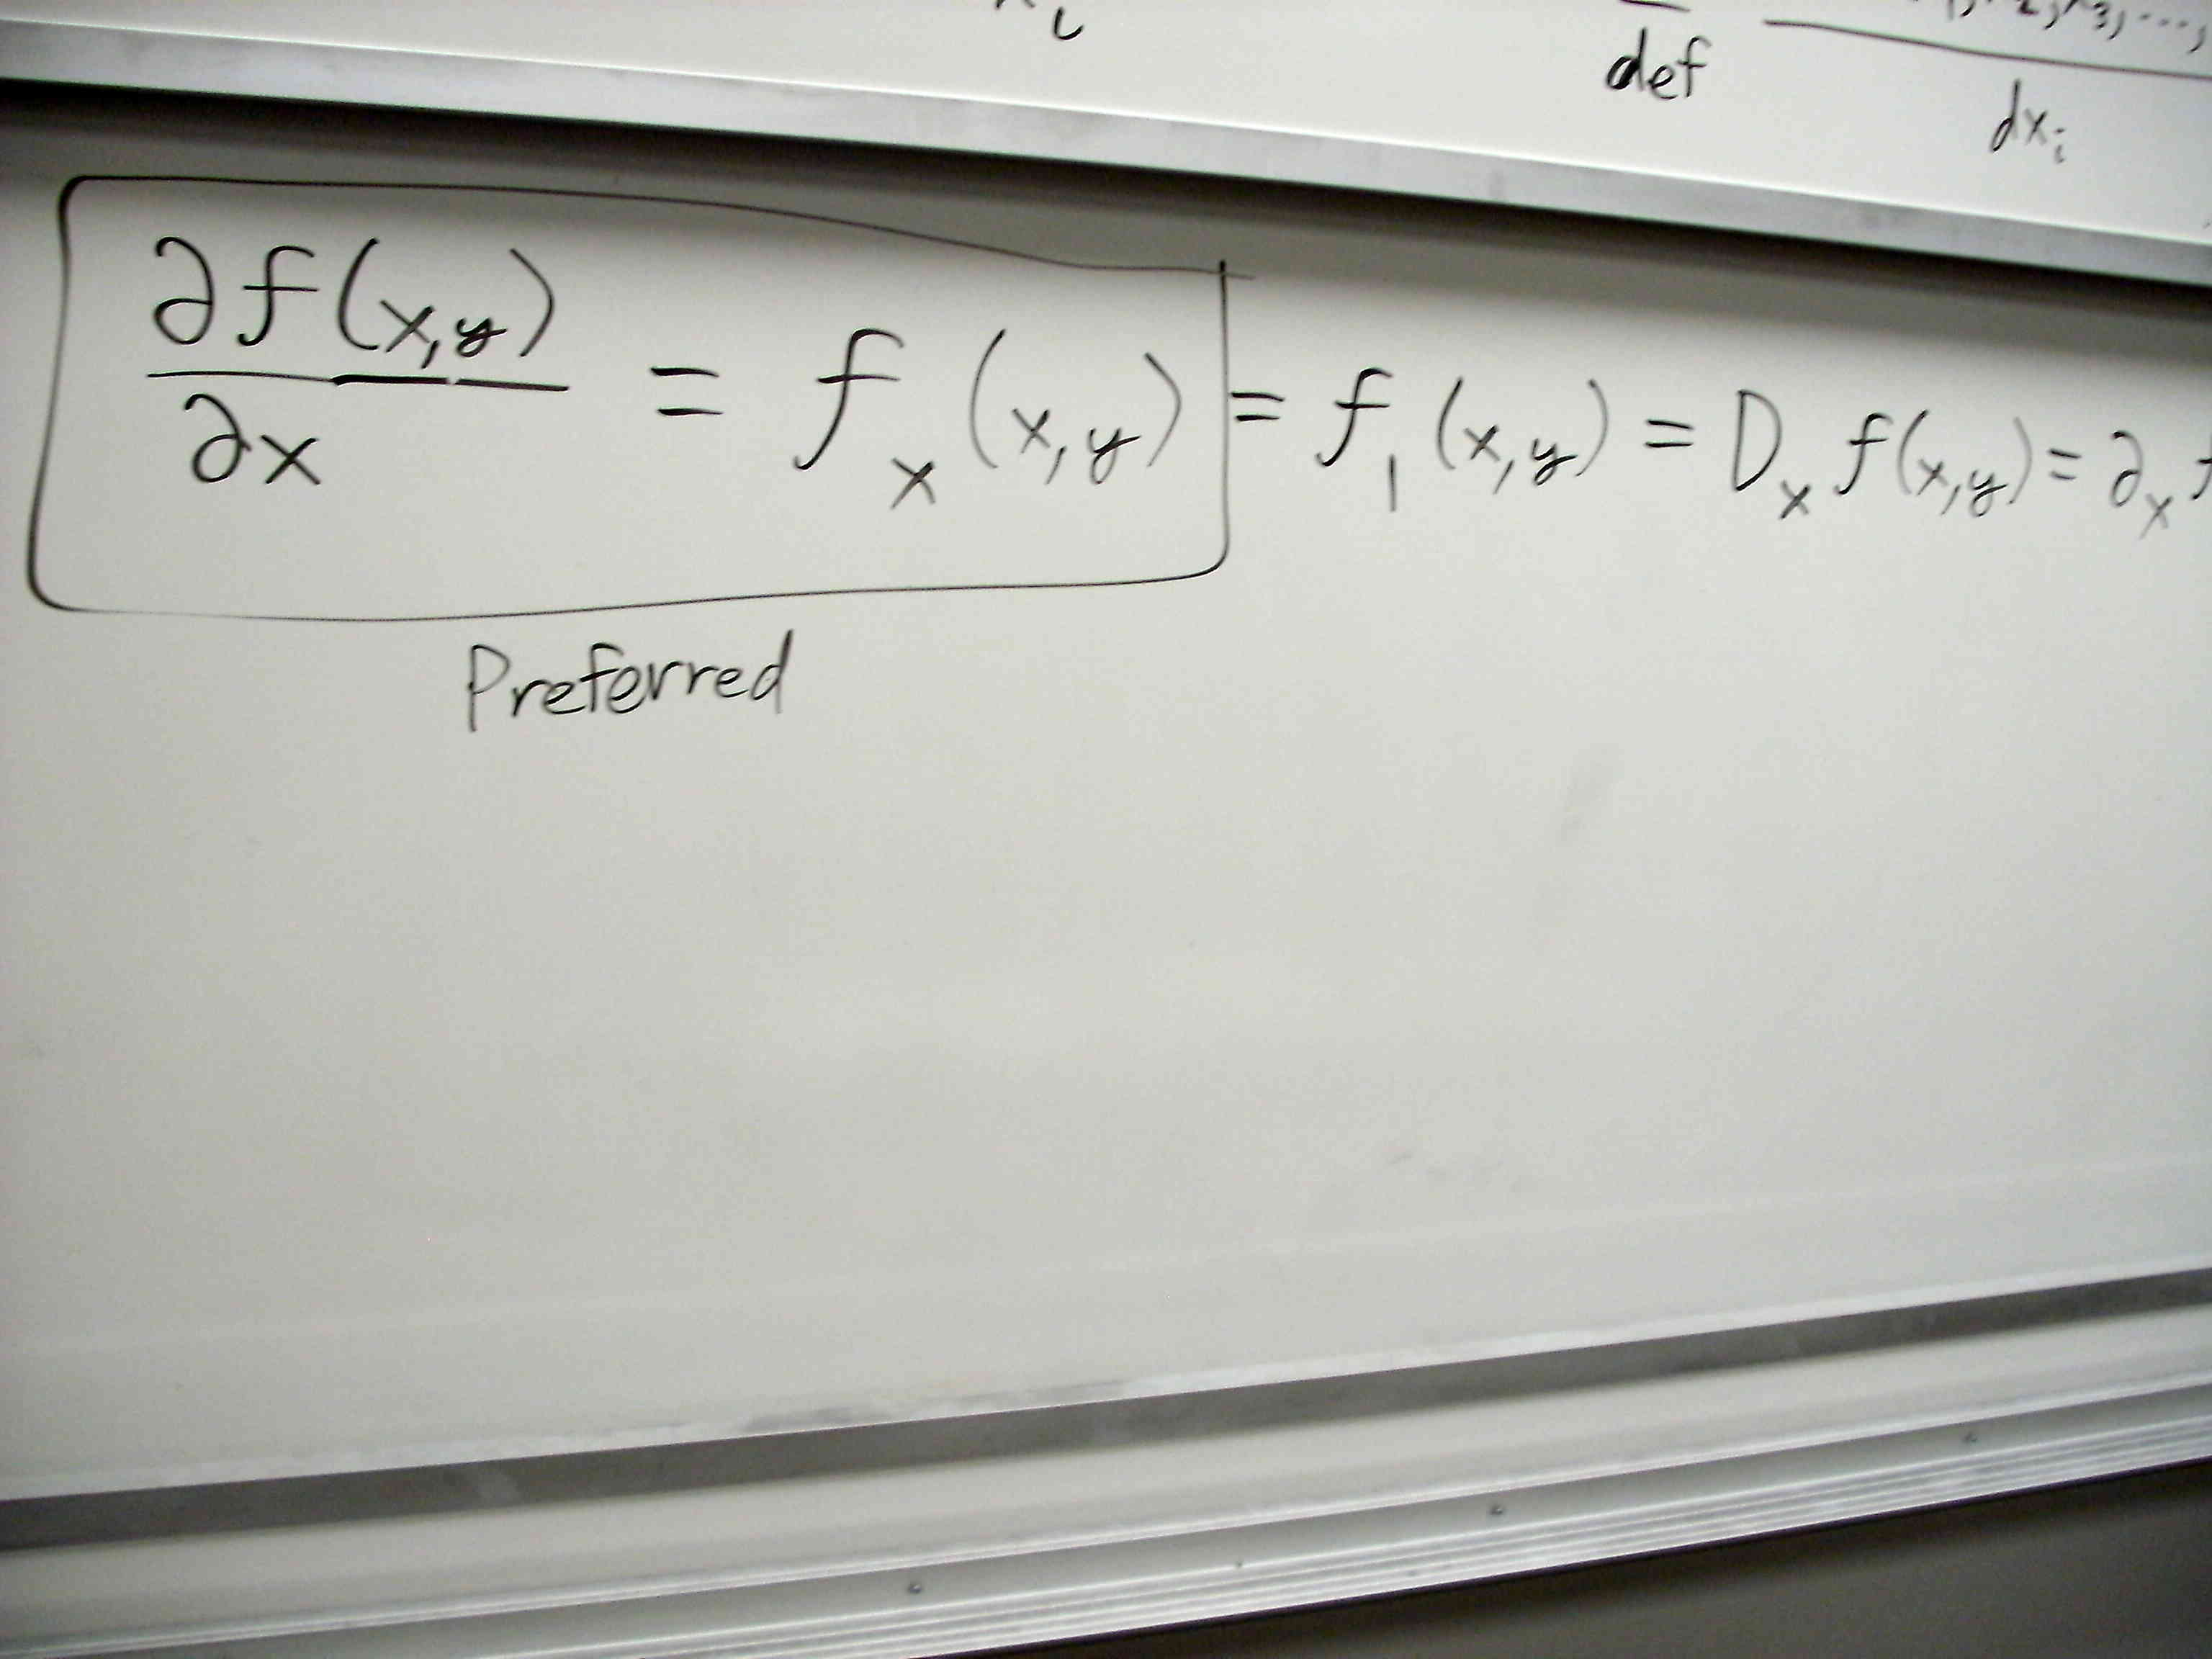 def
dxᵢ
∂f(x,y) / ∂x = fₓ(x,y) = f₁(x,y) = Dₓ f(x,y) = ∂ₓ f
Preferred